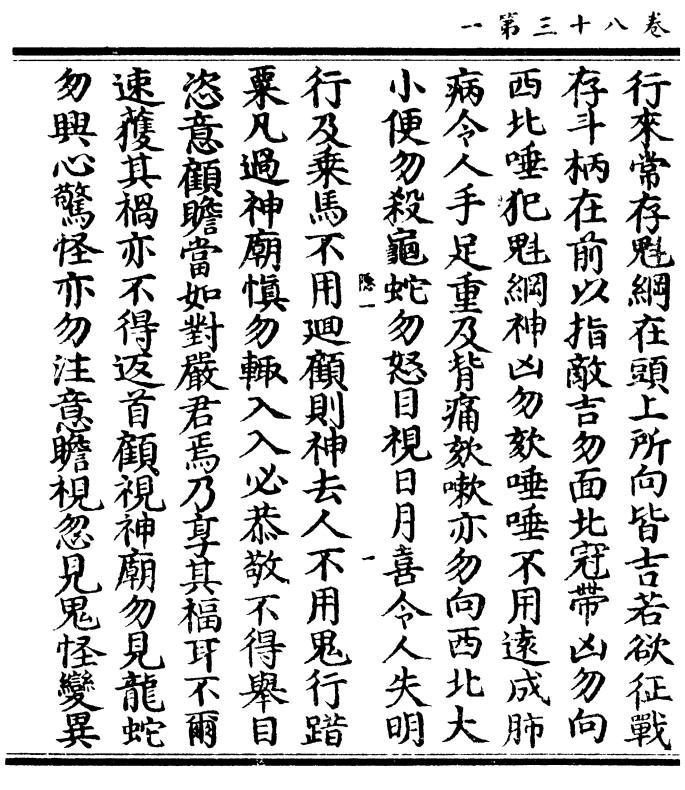 卷八十三第一
行來常存魁綱在頭上所向皆吉若欲征戰
存斗柄在前以指敵吉勿面北冠帶凶勿向
西北唾犯魁綱神凶勿欬唾唾不用遠成肺
病令人手足重及背痛欬嗽亦勿向西北大
小便勿殺龜蛇勿怒目視日月喜令人失明
隐一
一
行及乘馬不用廻顧則神去人不用鬼行踖
粟凡過神廟慎勿輙入入必恭敬不得舉目
恣意顧瞻當如對嚴君焉乃享其福耳不爾
速獲其禍亦不得返首顧視神廟勿見龍蛇
勿興心驚怪亦勿注意瞻視忽見鬼怪變異